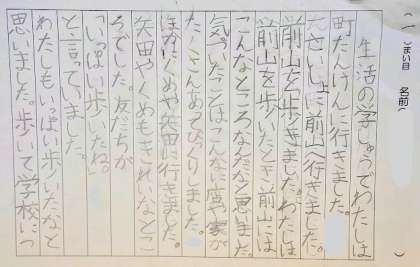 （一）まい目　名前（　　　）
生活の学しゅうでわたしは
町たんけんに行きました。
大さいしょに前山へ行きました。
前山を歩きました。わたしは
前山を歩いたとき前山には
こんなところなんだなと思いました。
気づいたことはこんなに店や家が
たくさんあってびっくりしました。
ほかにくめや矢田に行きました。
矢田やくめもきれいなとこ
ろでした。友だちが
「いっぱい歩いたね。」
と言っていました。
わたしもいっぱい歩いたなと
思いました。歩いて学校につ